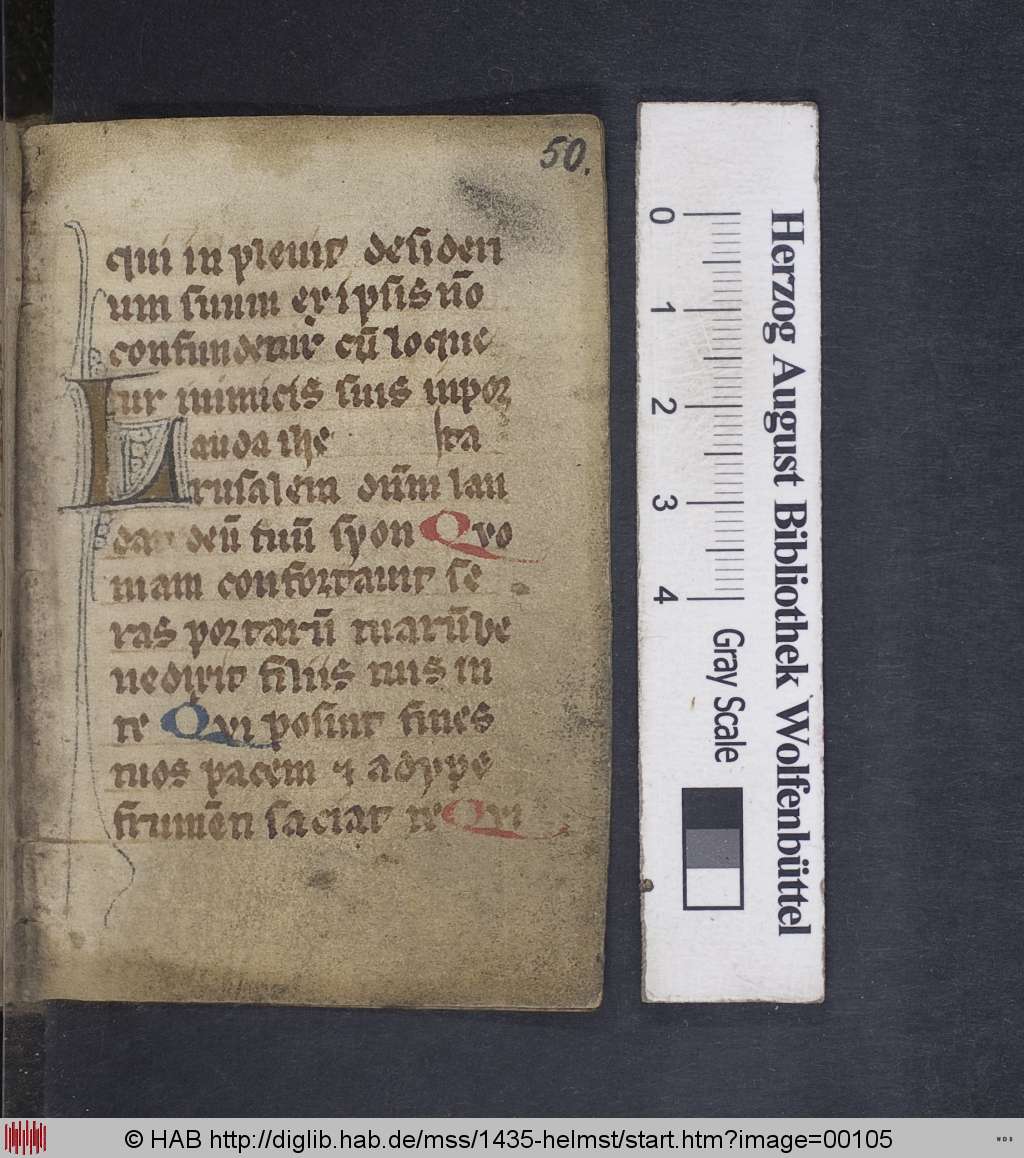 50.
qui inpleuit desideri
um suum ex ipsis nō
confundetur cū loque
tur inimicis suis in por
Lauda ihe ta
rusalem dūm lau
da deū tuū syon Quo
niam confortauit se
ras portarū tuarū be
nedixit filiis tuis in
te Qui posuit fines
tuos pacem ⁊ adype
frumēti saciat te Qui
0 1 2 3 4
Gray Scale
Herzog August Bibliothek Wolfenbüttel
© HAB http://diglib.hab.de/mss/1435-helmst/start.htm?image=00105